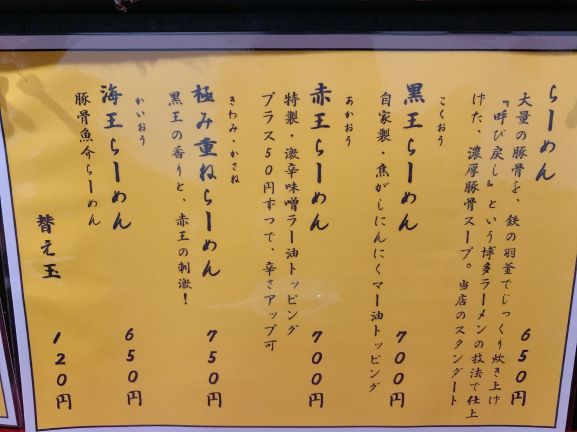 らーめん
大量の豚骨を、鉄の羽釜でじっくり炊き上げ
『呼び戻し』という博多ラーメンの技法で仕上
げた、濃厚豚骨スープ。当店のスタンダート
650円
こくおう
黒王らーめん
自家製・焦がしにんにくマー油トッピング
700円
あかおう
赤王らーめん
特製・激辛味噌ラー油トッピング
プラス50円ずつで、辛さアップ可
700円
きわみ・かさね
極み重ねらーめん
黒王の香りと、赤王の刺激!
750円
かいおう
海王らーめん
豚骨魚介らーめん
650円
替え玉
120円